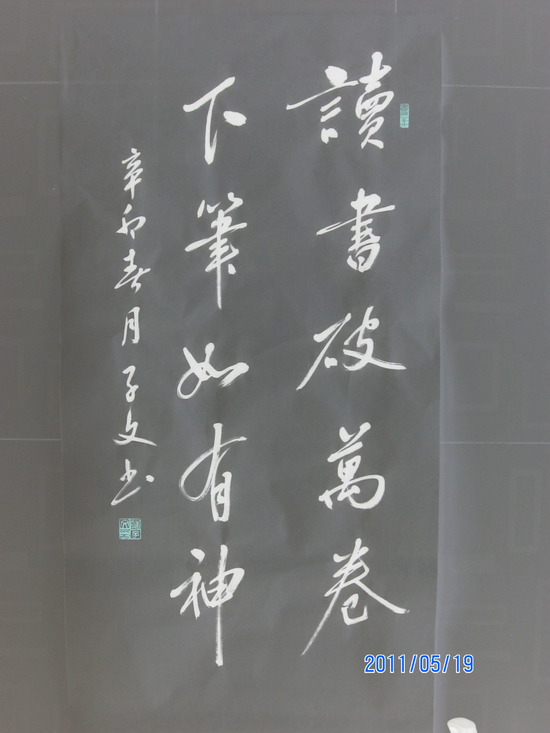 讀書破萬卷
下筆如有神
辛卯春月子文书
2011/05/19